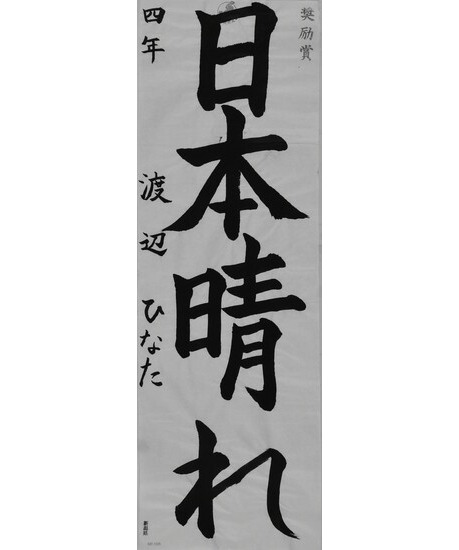 奨励賞
日本晴れ
四年 渡辺 ひなた